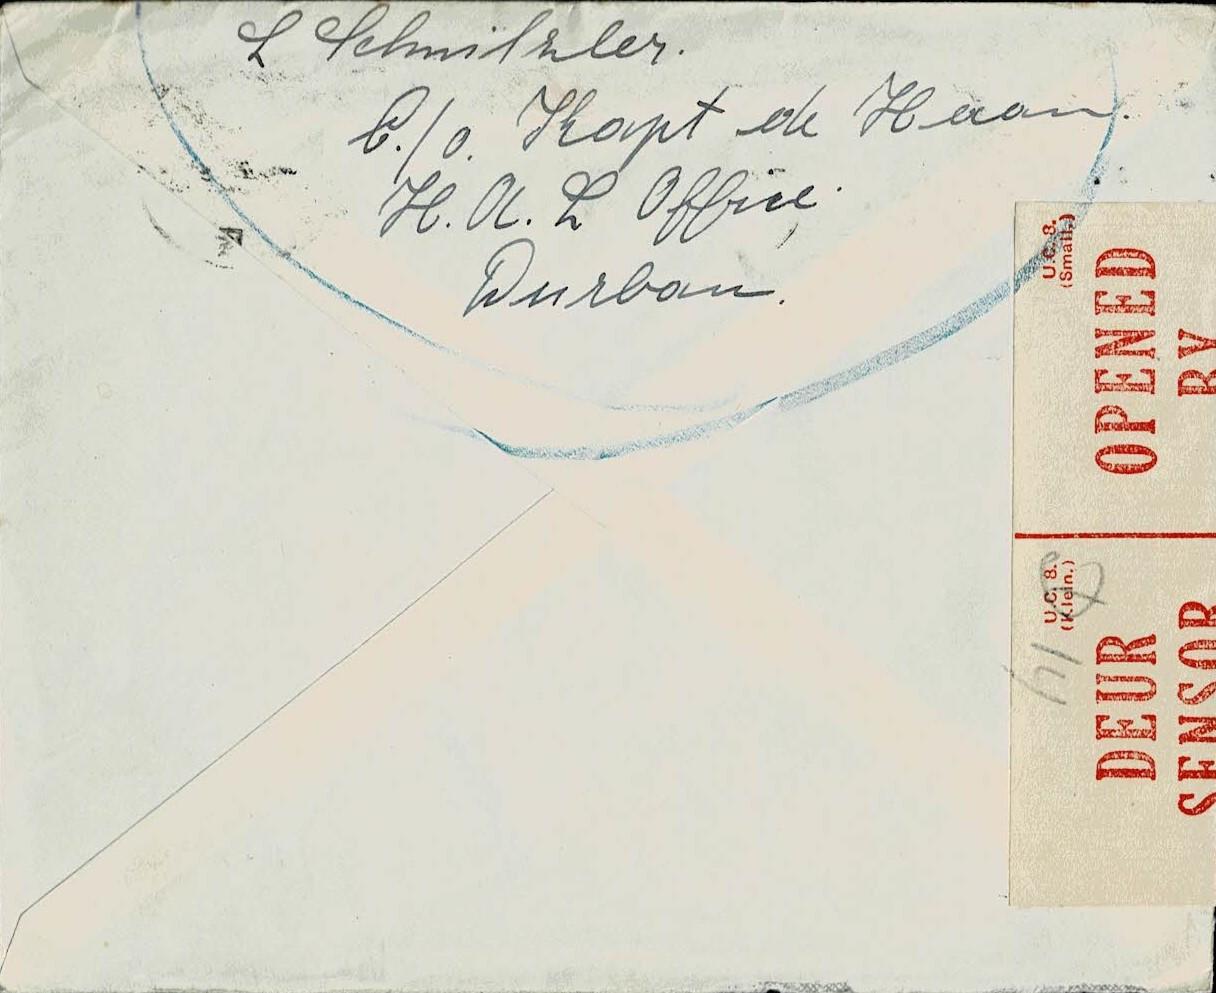 L Schnitzler.
C./o. Kapt de Haan.
H.A.L Office
Durban.
U.C. 8.
(Small.)
OPENED
BY
U.C. 8.
(Klein.)
DEUR
SENSOR
14